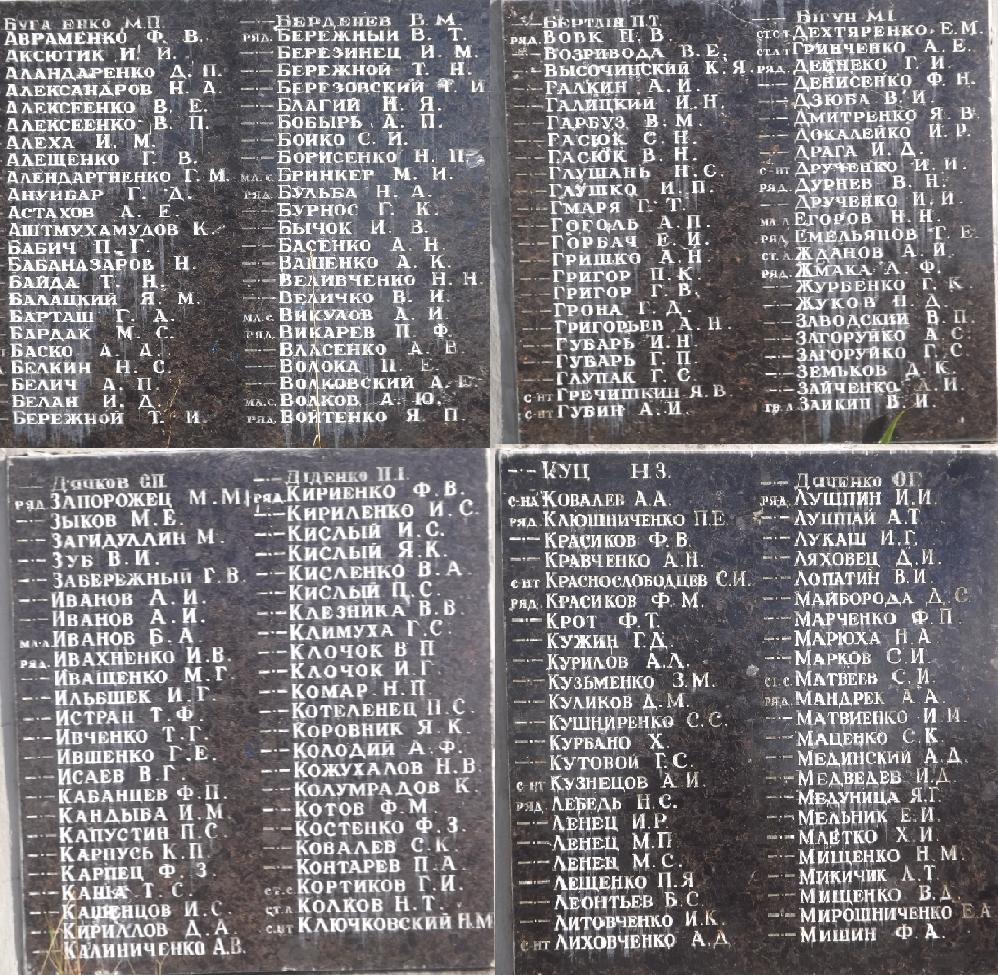 БУГАЕНКО М.П.
АВРАМЕНКО Ф. В.
АКСЮТИК И. И.
АЛАНДАРЕНКО Д. П.
АЛЕКСАНДРОВ Н. А
АЛЕКСЕЕНКО В. Е.
АЛЕКСЕЕНКО В. П.
АЛЕХА И. М.
АЛЕЩЕНКО Г. В.
АЛЕНДАРТНЕНКО Г. М.
АНУИБАР Г. Д.
АСТАХОВ А. Е.
АШТМУХАМУДОВ К.
БАБИЧ П. Г.
БАБАНАЗАРОВ Н.
БАЙДА Т. Н.
БАЛАЦКИЙ Я. М.
БАРТАШ Г. А.
БАРДАК М. С.
БАСКО А. А.
БЕЛКИН Н. С.
БЕЛИЧ А. П.
БЕЛАН И. Д.
БЕРЕЖНОЙ Т. И.
--- БЕРДЕНЕВ В. М
РЯД. БЕРЕЖНЫЙ В. Т.
--- БЕРЕЗИНЕЦ И. М.
--- БЕРЕЖНОЙ Т. Н.
--- БЕРЕЗОВСКИЙ Т. И
--- БЛАГИЙ Н. Я.
--- БОБЫРЬ А. П.
--- БОЙКО С. И.
--- БОРИСЕНКО Н. П
МЛ. С. БРИНКЕР М. И.
РЯД. БУЛЬБА Н. А.
--- БУРНОС Г. К.
--- БЫЧОК И. В.
--- БАСЕНКО А. Н.
--- ВАЩЕНКО А. К.
--- ВЕЛИВЧЕНКО Н. Н
--- ВЕЛИЧКО В. И.
МЛ. С. ВИКУЛОВ А. И.
РЯД. ВИКАРЕВ П. Ф.
--- ВЛАСЕНКО А. В.
--- ВОЛОКА П. Е.
--- ВОЛКОВСКИЙ А. Е.
МЛ. С. ВОЛКОВ А. Ю.
РЯД. ВОЙТЕНКО Я. П.
--- БЕРТЛІН П.Т.
РЯД. ВОВК П. В.
--- ВОЗРИВОДА В. Е.
--- ВЫСОЧИНСКИЙ К. Я.
--- ГАЛКИН А. И.
--- ГАЛИЦКИЙ И. Н.
--- ГАРБУЗ В. М.
--- ГАСЮК С. Н.
--- ГАСЮК В. Н.
--- ГЛУШАНЬ Н. С.
--- ГЛУШКО И. П.
--- ГМАРЯ Г. Т.
--- ГОГОЛЬ А. П.
--- ГОРБАЧ Е. И.
--- ГРИШКО А. Н
--- ГРИГОР П. К
--- ГРИГОР Г. В.
--- ГРОНА Г. Д.
--- ГРИГОРЬЕВ А. Н.
--- ГУБАРЬ И. Н
--- ГУБАРЬ Г. П
--- ГЛУПАК Г. С
С-НТ ГРЕЧИШКИН Я. В
С-НТ ГУБИН А. И.
--- БІГУН М.І
СТ.С. ДЕХТЯРЕНКО Е. М.
СТ.Л ГРИНЧЕНКО А. Е.
РЯД. ДЕЙНЕКО Г. И
--- ДЕНИСЕНКО Ф. Н.
--- ДЗЮБА В. И.
--- ДМИТРЕНКО Я. В.
--- ДОКАЛЕЙКО И. Р.
--- ДРАГА И. Д.
С-НТ ДРУЧЕНКО И. И.
РЯД. ДУРНЕВ В. Н.
--- ДРУЧЕНКО И. И.
МЛ.Л ЕГОРОВ Н. Н.
РЯД. ЕМЕЛЬЯНОВ Г. Е.
СТ.Л ЖДАНОВ А. И
РЯД. ЖМАКА А. Ф.
--- ЖУРБЕНКО Г. К
--- ЖУКОВ Н. Д.
--- ЗАВОДСКИЙ В. П.
--- ЗАГОРУЙКО А. С.
--- ЗАГОРУЙКО Г. С
--- ЗЕМЬКОВ Д. К.
--- ЗАЙЧЕНКО И.
ГВ. Л ЗАИКИН В. И.
--- Дячков С.П.
РЯД. ЗАПОРОЖЕЦ М. М
--- ЗЫКОВ М. Е.
--- ЗАГИДУЛЛИН М.
--- ЗУБ В. И.
--- ЗАБЕРЕЖНЫЙ Г. В.
--- ИВАНОВ А. И.
--- ИВАНОВ А. И.
МЛ.Л ИВАНОВ Б. А.
РЯД. ИВАХНЕНКО И. В
--- ИВАЩЕНКО М. Г
--- ИЛЬБШЕК И. Г
--- ИСТРАН Т. Ф.
--- ИВЧЕНКО Т. Г.
--- ИВШЕНКО Г. Е.
--- ИСАЕВ В. Г
--- КАБАНЦЕВ Ф. П.
--- КАНДЫБА И. М
--- КАПУСТИН П. С.
--- КАРПУСЬ К. П.
--- КАРПЕЦ Ф. З
--- КАША Т. С.
--- КАШЕНЦОВ И. С.
--- КИРИЛЛОВ Д. А
КАЛИНИЧЕНКО А. В.
--- ДІДЕНКО П.І.
РЯД. КИРИЕНКО Ф. В.
--- КИРИЛЕНКО И. С.
--- КИСЛЫЙ И. С.
--- КИСЛЫЙ Я. К.
--- КИСЛЕНКО В. А
--- КИСЛЫЙ П. С.
--- КЛЕЗНИКА В. В
--- КЛИМУХА Г. С.
--- КЛОЧОК В П
--- КЛОЧОК И. Г.
--- КОМАР Н. П
--- КОТЕЛЕНЕЦ П. С.
--- КОРОВНИК Я. К.
--- КОЛОДИЙ А. Ф.
--- КОЖУХАЛОВ Н. В.
--- КОЛУМРАДОВ К.
--- КОТОВ Ф. М
--- КОСТЕНКО Ф. З.
--- КОВАЛЕВ С. К
--- КОНТАРЕВ П. А
СТ. С КОРТИКОВ Г. И.
СТ.Л КОЛКОВ Н. Т.
С.НТ КЛЮЧКОВСКИЙ Н. М
--- КУЦ Н.З.
С-НА КОВАЛЕВ А. А.
РЯД КЛЮШНИЧЕНКО П. Е.
--- КРАСИКОВ Ф. В.
--- КРАВЧЕНКО А. Н.
С НТ КРАСНОСЛОБОДЦЕВ С. И.
РЯД. КРАСИКОВ Ф. М.
--- КРОТ Ф. Т.
--- КУЖИН Г. Д.
--- КУРИЛОВ А. Л.
--- КУЗЬМЕНКО З. М.
--- КУЛИКОВ Д. М.
--- КУШНИРЕНКО С. С.
--- КУРБАНО Х.
--- КУТОВОЙ Г. С.
С НТ КУЗНЕЦОВ А. И.
РЯД ЛЕБЕДЬ Н. С.
--- ЛЕНЕЦ И. Р.
--- ЛЕНЕЦ М. П
--- ЛЕНЕЦ М. С.
--- ЛЕЩЕНКО П. Я
--- ЛЕОНТЬЕВ Б. С.
--- ЛИТОВЧЕНКО И. К.
С-НТ ЛИХОВЧЕНКО А. Д
--- Дяченко О.Г.
РЯД. ЛУШПИН И. И.
--- ЛУШПАЙ А. Т.
--- ЛУКАШ И. Г.
--- ЛЯХОВЕЦ Д. И.
--- ЛОПАТИН В. И.
--- МАЙБОРОДА Д. С
--- МАРЧЕНКО Ф. П
--- МАРЮХА Н. А
--- МАРКОВ С. И.
СТ. С. МАТВЕЕВ С. И.
РЯД. МАНДРЕК А. А.
--- МАТВИЕНКО И. И.
--- МАЦЕНКО С. К.
--- МЕДИНСКИЙ А. Д.
--- МЕДВЕДЕВ И. Д.
--- МЕДУНИЦА Я. Г.
--- МЕЛЬНИК Е. И.
--- МЛЕТКО Х. И.
--- МИЩЕНКО Н. М.
--- МИКИЧИК А. Т
--- МИЩЕНКО В. Д.
--- МИРОШНИЧЕНКО Е. А
--- МИШИН Ф. А.